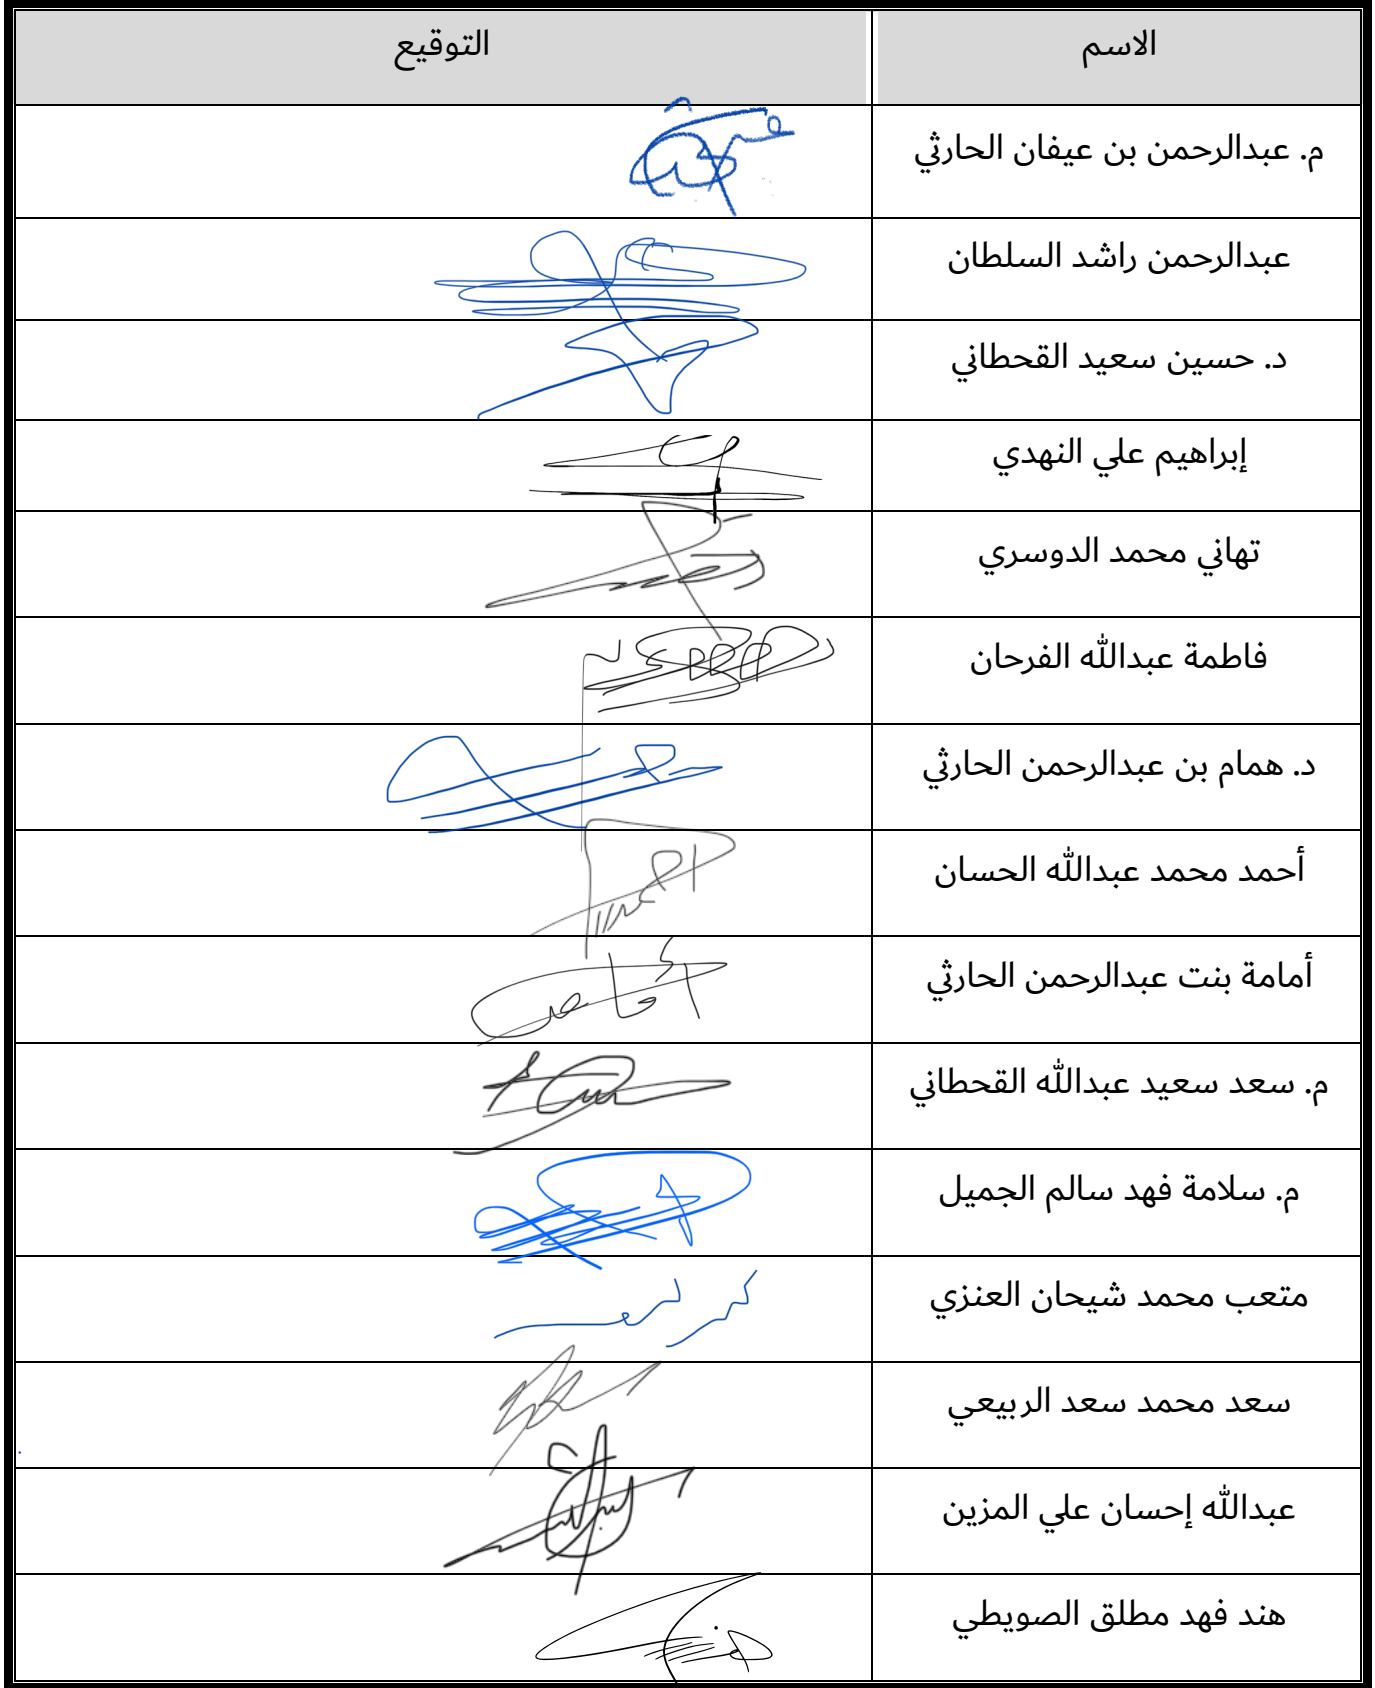 الاسم التوقيع
م. عبدالرحمن بن عيفان الحارثي
عبدالرحمن راشد السلطان
د. حسين سعيد القحطاني
إبراهيم علي النهدي
تهاني محمد الدوسري
فاطمة عبدالله الفرحان
د. همام بن عبدالرحمن الحارثي
أحمد محمد عبدالله الحسان
أمامة بنت عبدالرحمن الحارثي
م. سعد سعيد عبدالله القحطاني
م. سلامة فهد سالم الجميل
متعب محمد شيحان العنزي
سعد محمد سعد الربيعي
عبدالله إحسان علي المزين
هند فهد مطلق الصويطي